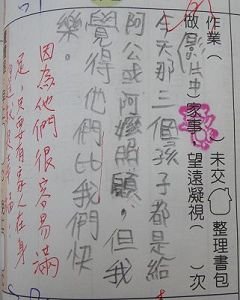 作業（　）未交　整理書包
做（　）家事（　）望遠凝視（　）次
影片中
今天那三個孩子都是給
阿公或阿嬤照顧，但我
覺得他們比我們快
樂。
因為他們很容易滿
足，只要有家人在身